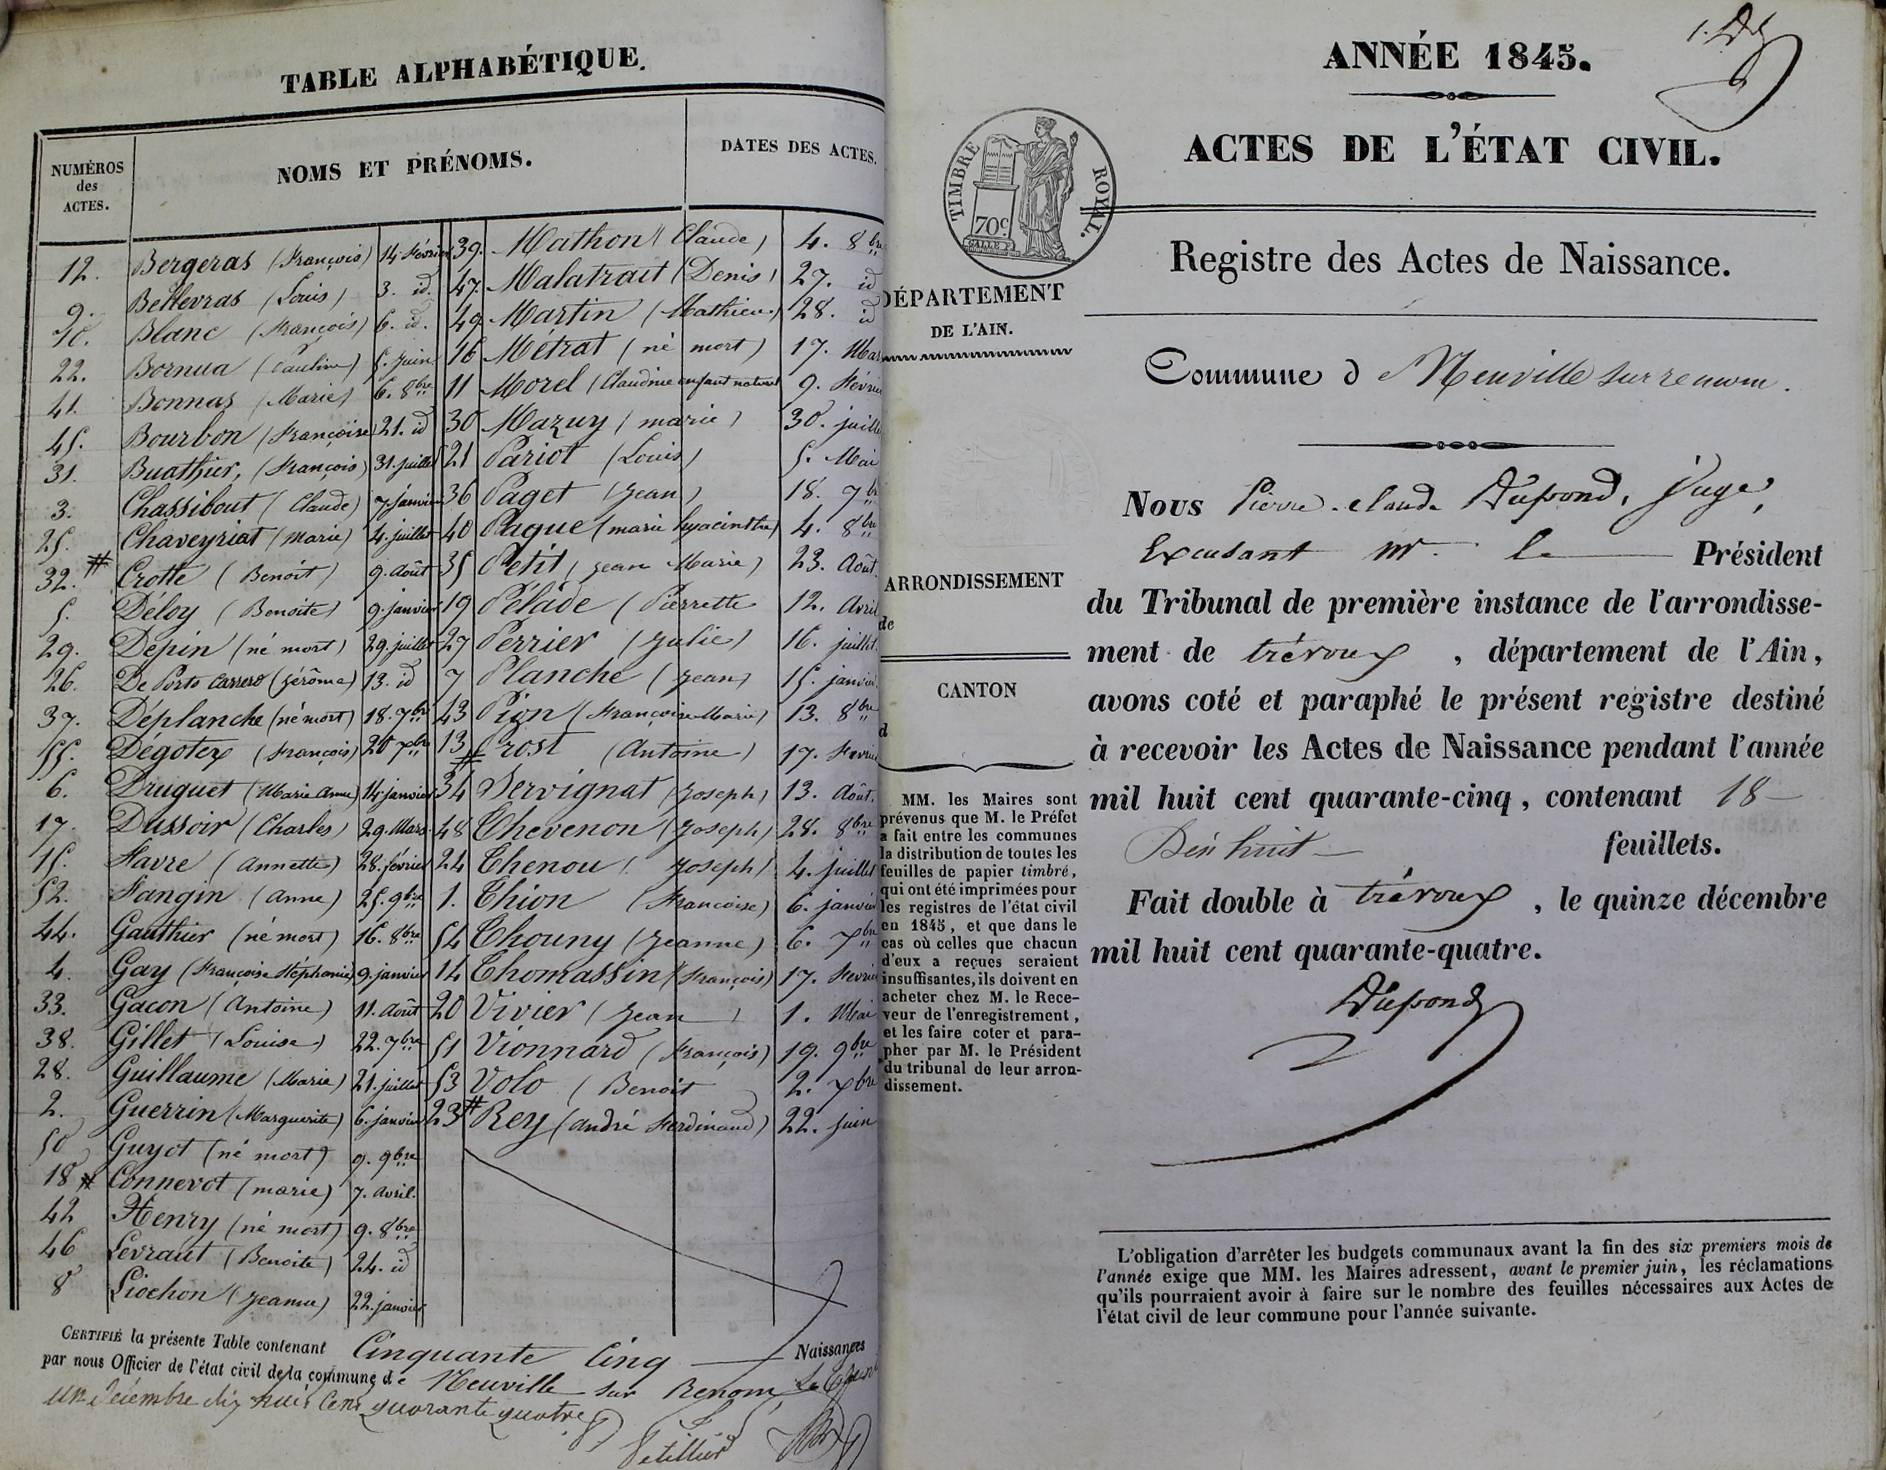 TABLE ALPHABÉTIQUE.
NUMÉROS
des
ACTES.
NOMS ET PRÉNOMS.
DATES DES ACTES.
12. Bergeras (François) 14. Février
9. Bellevras (Louis) 3. id.
10. Blanc (François) 6. id.
22. Bornua (Pauline) 5. Juin
41. Bonnas (Marie) 6. 8bre
45. Bourbon (Françoise) 21. id
31. Buathier, (François) 31. juillet
3. Chassibout (Claude) 7 janvier
25. Chaveyriat (Marie) 4. juillet
32. # Crotte (Benoit) 9. Août
5. Déloy (Benoite) 9. janvier
29. Dépin (né mort) 29. juillet
26. De Porto Carrero (Jérôme) 13. id
37. Déplanche (né mort) 18. 7bre
55. Dégotex (François) 20 xbre
6. Druguet (Marie Anne) 14 janvier
17. Dussoir (Charles) 29. Mars
15. Favre (Annette) 28. février
52. Fangin (Anne) 25. 9bre
44. Gauthier (né mort) 16. 8bre
4. Gay (Françoise Stéphanie) 9. janvier
33. Gacon (Antoine) 11. Août
38. Gillet (Louise) 22. 7bre
28. Guillaume (Marie) 21. juillet
2. Guerrin (Marguerite) 6. janvier
50 Guyot (né mort) 9. 9bre
18 # Connevot (marie) 7. avril.
42 Henry (né mort) 9. 8bre
46 Levraut (Benoite) 24. id
8 Liochon (Jeanne) 22. janvier
39. Mathon (Claude) 4. 8bre
47. Malatrait (Denis) 27. id
49 Martin (Mathieu) 28. id
16 Métrat (né mort) 17. Mar
11 Morel (Claudine enfant naturel 9. Févrie
30 Mazuy (marie) 30. juille
21 Pariot (Louis) 5. Mai
36 Paget (Jean) 18. 7br
40 Pague (marie hyacinthe) 4. 8bre
35 Petit (Jean Marie) 23. Août.
19 Pélade (Pierrette 12. Avril
27 Perrier (Julie) 16. juillet.
7 Planche (Jean) 15. janvier.
43 Pion (Françoise Marie) 13. 8bre
13 # Prost (Antoine) 17. Fevrie
34 Servignat (Joseph) 13. Août.
48 Thevenon (Joseph) 28. 8bre
24 Thenou (Joseph) 4. juillet
1. Thion (Françoise) 6. janvier
54 Thouny (Jeanne) 6. xbre
14 Thomassin (François) 17. Fevrie
20 Vivier (Jean) 1. Mai
51 Vionnard (François) 19. 9bre
53 Volo (Benoit 2. xbre
23 # Rey (andré Ferdinand) 22. juin
CERTIFIÉ la présente Table contenant Cinquante Cinq Naissances
par nous Officier de l'état civil de la commune de Neuville sur Renom, Le Trente
un Décembre dix huit Cent quarante quatre
ANNÉE 1845.
ACTES DE L'ÉTAT CIVIL.
TIMBRE ROYAL.
70c
Registre des Actes de Naissance.
DÉPARTEMENT
DE L'AIN.
Commune d Neuville sur renom.
ARRONDISSEMENT
de
CANTON
d
MM. les Maires sont
prévenus que M. le Préfet
a fait entre les communes
la distribution de toutes les
feuilles de papier timbré,
qui ont été imprimées pour
les registres de l'état civil
en 1845, et que dans le
cas où celles que chacun
d'eux a reçues seraient
insuffisantes, ils doivent en
acheter chez M. le Rece-
veur de l'enregistrement,
et les faire coter et para-
pher par M. le Président
du tribunal de leur arron-
dissement.
Nous Pierre-claude Dupond, Juge,
Excusant mr. le Président
du Tribunal de première instance de l'arrondisse-
ment de trévoux, département de l'Ain,
avons coté et paraphé le présent registre destiné
à recevoir les Actes de Naissance pendant l'année
mil huit cent quarante-cinq, contenant 18
Dix huit feuillets.
Fait double à trévoux, le quinze décembre
mil huit cent quarante-quatre.
Dupond
L'obligation d'arrêter les budgets communaux avant la fin des six premiers mois de
l'année exige que MM. les Maires adressent, avant le premier juin, les réclamations
qu'ils pourraient avoir à faire sur le nombre des feuilles nécessaires aux Actes de
l'état civil de leur commune pour l'année suivante.